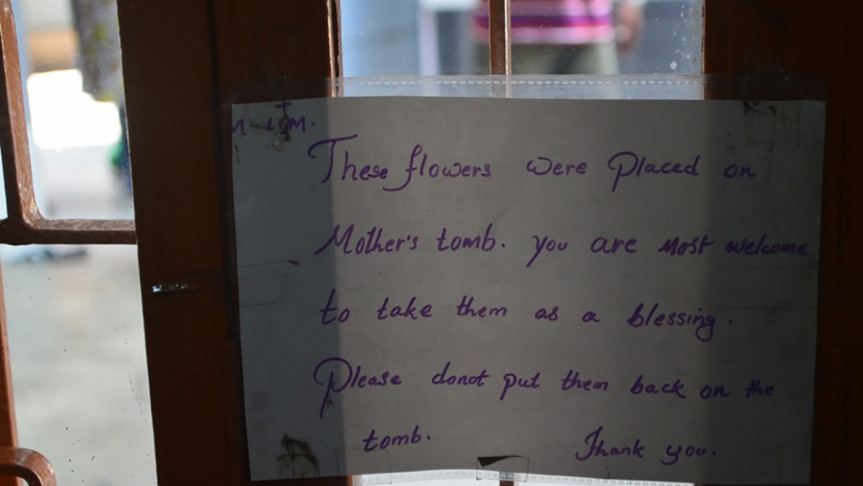 These flowers were Placed on
Mother's tomb. you are most welcome
to take them as a blessing.
Please donot put them back on the
tomb. Thank you.